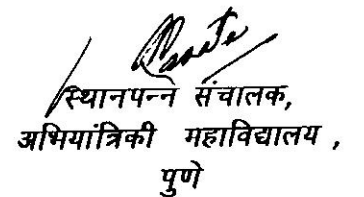 स्थानपन्न संचालक,
अभियांत्रिकी महाविद्यालय ,
पुणे